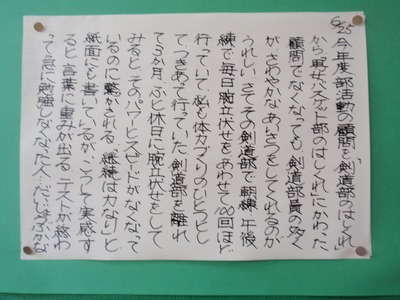 6/25 今年度、部活動の顧問を「剣道部のはしくれ」
から「男女バスケット部のはしくれ」にかわった
顧問でなくなっても、剣道部員の多く
が、さわやかなあいさつをしてくれるのが
うれしい。さてその剣道部で、朝練、午後
練で毎日腕立伏せをあわせて100回ほど
行っていて、私も体力づくりのひとつとし
て、つきあって行っていた。剣道部を離れ
て3か月、ふと休日に腕立伏せをして
みると、そのパワーとスピードがなくなって
いるのに驚かされる。「継続は力なり」と
紙面にも書いているが、こうして実感す
ると言葉に重みが出る。テストが終わ
って急に勉強しなくなった人、だいじょうぶかな